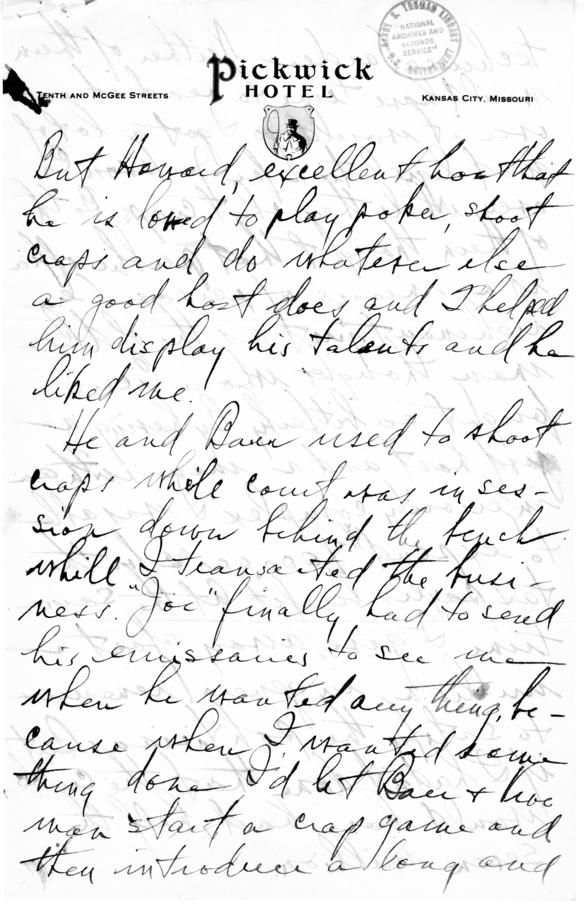 HARRY S. TRUMAN LIBRARY
"NATIONAL
ARCHIVES AND
RECORDS
SERVICE"
U.S. GOVERNMENT
Pickwick
HOTEL
TENTH AND MCGEE STREETS
KANSAS CITY, MISSOURI
But Howard, excellent host that
he is loved to play poker, shoot
craps and do whatever else
a good host does and I helped
him display his talents and he
liked me.
He and Barr used to shoot
craps while court was in ses-
sion down behind the bench
while I transacted the busi-
ness. "Joe" finally had to send
his emissaries to see me
when he wanted any thing, be-
cause when I wanted some
thing done I'd let Barr +
man start a crap game and
then introduce a long and